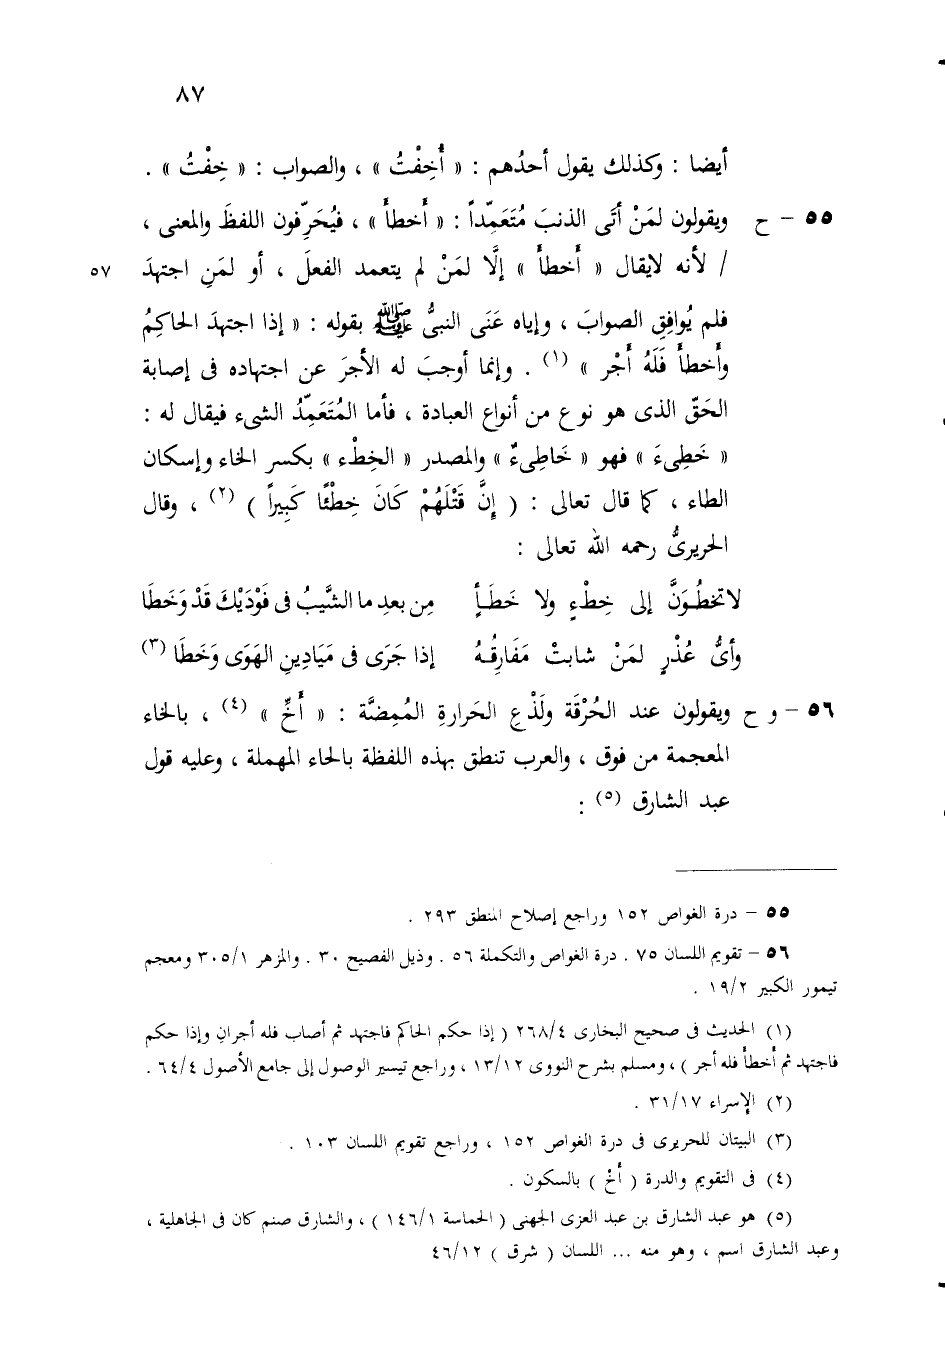 ٨٧
أيضا : وكذلك يقول أحدُهم : « أُخِفْتُ » ، والصواب : « خِفْتُ » .
٥٥ – ح ويقولون لمَنْ أتَى الذنبَ مُتَعَمِّداً : « أَخطأَ » ، فيُحَرِّفون اللفظَ والمعنى ،
/ لأنه لايقال « أَخطأَ » إلَّا لمَنْ لم يتعمد الفعلَ ، أو لمَنِ اجتهدَ ٥٧
فلم يُوافِقِ الصوابَ ، وإياه عَنَى النبىُّ ﷺ بقوله : « إذا اجتهدَ الحاكِمُ
وأَخطأَ فَلَهُ أَجْر » (١) . وإنما أوجبَ له الأجرَ عن اجتهاده فى إصابة
الحَقّ الذى هو نوع من أنواع العبادة ، فأما المُتَعَمِّدُ الشىء فيقال له :
« خَطِىءَ » فهو « خَاطِىءٌ » والمصدر « الخِطْء » بكسر الخاء وإسكان
الطاء ، كما قال تعالى : ( إِنَّ قَتْلَهُمْ كَانَ خِطْئًا كَبِيراً ) (٢) ، وقال
الحريرىُّ رحمه الله تعالى :
لاتخطُوَنَّ إلى خِطْءٍ ولا خَطَأٍ مِن بعدِ ما الشَّيبُ فى فَوْدَيْكَ قَدْ وَخَطَا
وأىُّ عُذْرٍ لمَنْ شابتْ مَفَارِقُهُ إذا جَرَى فى مَيَادِينِ الهَوَى وَخَطَا (٣)
٥٦ – و ح ويقولون عند الحُرْقَة ولَذْعِ الحَرارةِ المُمِضَّة : « أَخِّ » (٤) ، بالخاء
المعجمة من فوق ، والعرب تنطق بهذه اللفظة بالحاء المهملة ، وعليه قول
عبد الشارق (٥) :
٥٥ – درة الغواص ١٥٢ وراجع إصلاح المنطق ٢٩٣ .
٥٦ – تقويم اللسان ٧٥ . درة الغواص والتكملة ٥٦ . وذيل الفصيح ٣٠ . والمزهر ٣٠٥/١ ومعجم
تيمور الكبير ١٩/٢ .
(١) الحديث فى صحيح البخارى ٢٦٨/٤ ( إذا حكم الحاكم فاجتهد ثم أصاب فله أجران وإذا حكم
فاجتهد ثم أخطأ فله أجر ) ، ومسلم بشرح النووى ١٣/١٢ ، وراجع تيسير الوصول إلى جامع الأصول ٦٤/٤ .
(٢) الإسراء ٣١/١٧ .
(٣) البيتان للحريرى فى درة الغواص ١٥٢ ، وراجع تقويم اللسان ١٠٣ .
(٤) فى التقويم والدرة ( أَخْ ) بالسكون .
(٥) هو عبد الشارق بن عبد العزى الجهنى ( الحماسة ١٤٦/١ ) ، والشارق صنم كان فى الجاهلية ،
وعبد الشارق اسم ، وهو منه ... اللسان ( شرق ) ٤٦/١٢